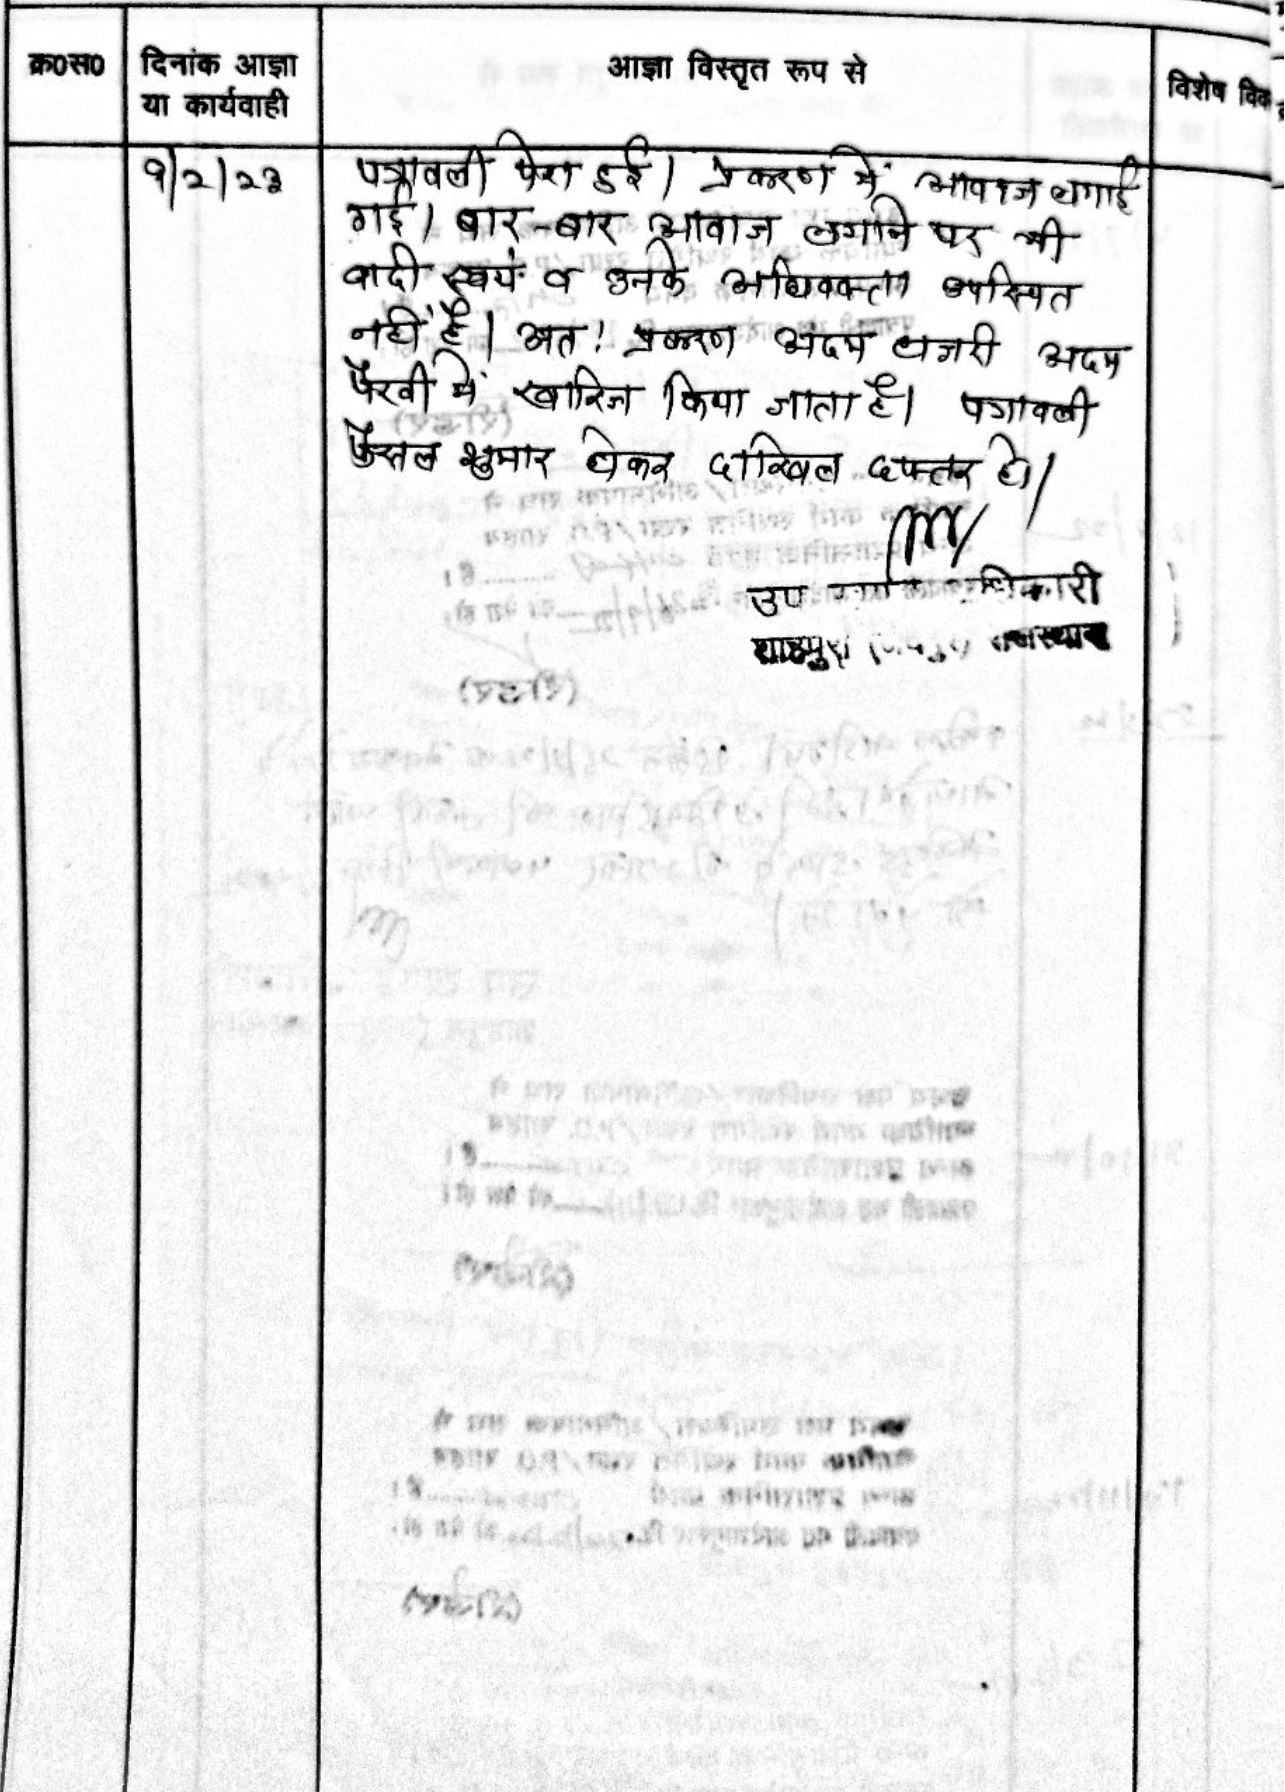 क्र०स०
दिनांक आज्ञा
या कार्यवाही
आज्ञा विस्तृत रूप से
विशेष विव
9/2/23
पत्रावली पेश हुई। प्रकरण में आवाज लगाई
गई। बार-बार आवाज लगाने पर भी
वादी स्वयं व उनके अधिवक्ता उपस्थित
नहीं है। अतः प्रकरण अदम हाजरी अदम
पैरवी में खारिज किया जाता है। पत्रावली
फैसल शुमार होकर दाखिल दफ्तर हो।
उप अधिकारी
शाहपुरा (जयपुर) राजस्थान